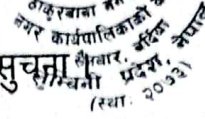 ठाकुरबाबा
नगर कार्यपालिकाको
सुचना
बर्दिया
प्रदेश, नेपाल
(स्था. २०७३)